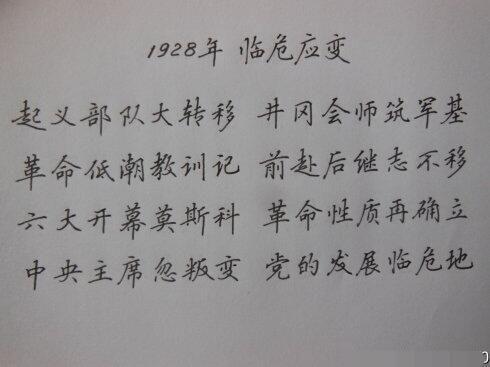 1928年 临危应变
起义部队大转移 井冈会师筑军基
革命低潮教训记 前赴后继志不移
六大开幕莫斯科 革命性质再确立
中央主席忽叛变 党的发展临危地